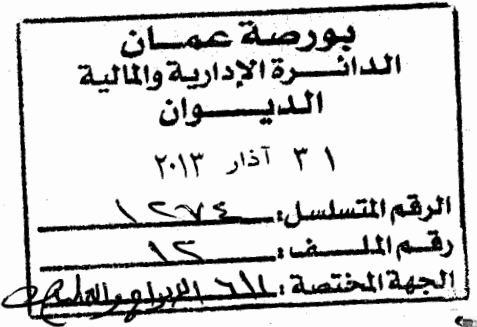 بورصة عمان
الدائرة الإدارية والمالية
الديوان
٣١ آذار ٢٠١٣
الرقم المتسلسل: ١٢٧٤
رقم الملف: ١٢
الجهة المختصة: